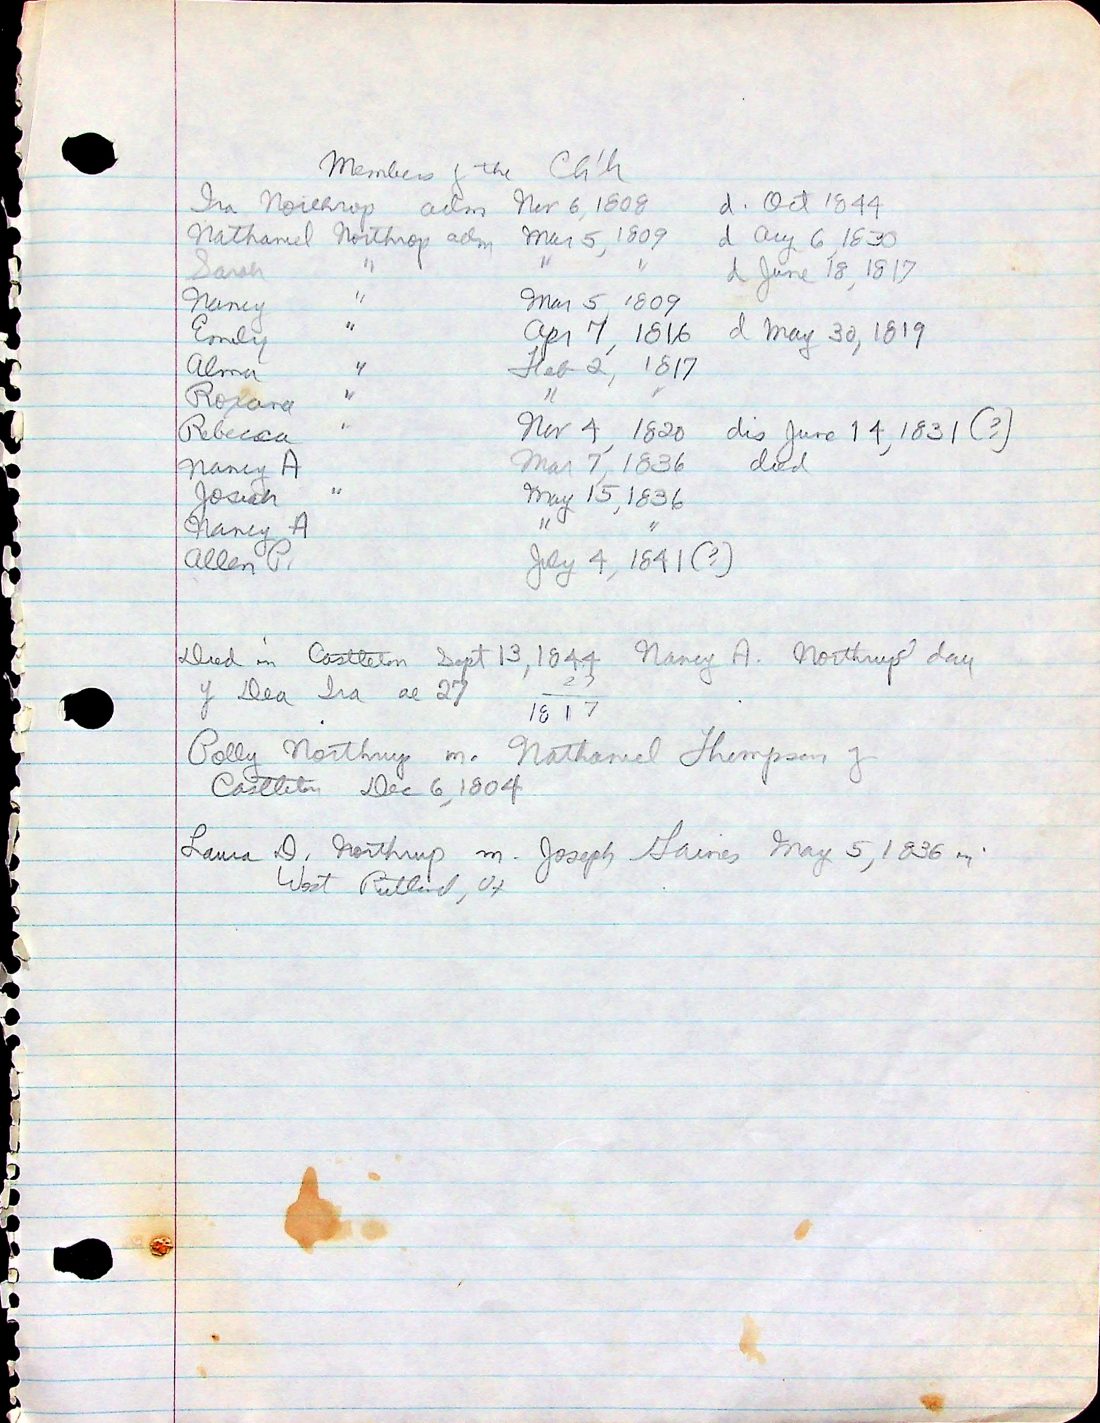 Members of the Ch'h
Ira Northrop adm Nov 6, 1808 d. Oct 1844
Nathaniel Northrop adm Mar 5, 1809 d Aug 6, 1830
Sarah " " " d June 18, 1817
Nancy " Mar 5, 1809
Emily " Apr 7, 1816 d May 30, 1819
Alma " Feb 2, 1817
Roxana " " "
Rebecca " Nov 4, 1820 dis June 14, 1831 (?)
Nancy A Mar 7, 1836 died
Josiah " May 15, 1836
Nancy A " "
Allen P. July 4, 1841 (?)
Died in Castleton Sept 13, 1844 Nancy A. Northrup dau
of Dea Ira ae 27 27
1817
Polly Northrup m. Nathaniel Thompson of
Castleton Dec 6, 1804
Laura D. Northrup m. Joseph Gaines May 5, 1836 in
West Rutland, Vt